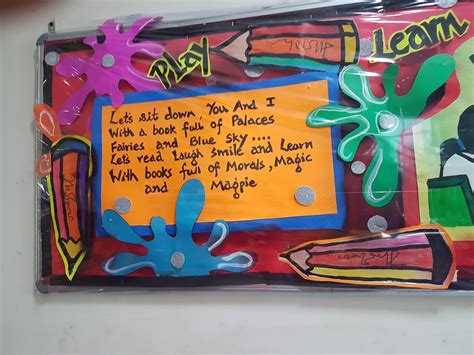 Play
Learn
Let's sit down, You And I
With a book full of Palaces
Fairies and Blue Sky ....
Let's read Laugh smile and Learn
With books full of Morals, Magic
and Magpie